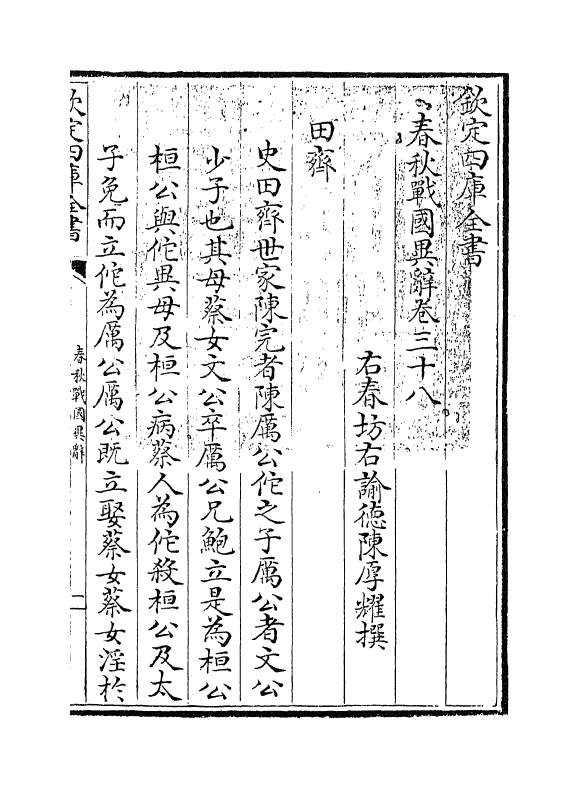 欽定四庫全書
春秋戰國異辭卷三十八
右春坊右諭徳陳厚耀撰
田齊
史田齊世家陳完者陳厲公佗之子厲公者文公
少子也其母蔡女文公卒厲公兄鮑立是為桓公
桓公與佗異母及桓公病蔡人為佗殺桓公及太
子免而立佗為厲公厲公既立娶蔡女蔡女淫於
欽定四庫全書
春秋戰國異辭